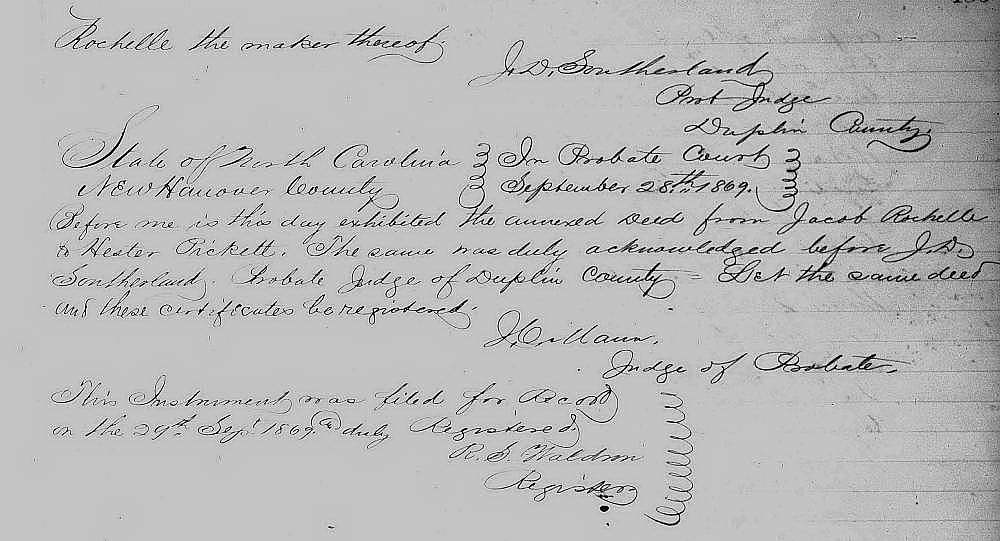 Rochelle the maker thereof
J. D. Southerland
Prob Judge
Duplin County.
State of North Carolina In Probate Court
New Hanover County September 28th. 1869.
Before me is this day exhibited the annexed deed from Jacob Rochelle
to Hester Pickett. The same was duly acknowledged before J. D.
Southerland. Probate Judge of Duplin County = Let the same deed
and these certificates be registered.
J. C. Mann.
Judge of Probate.
This Instrument was filed for Record
on the 29th Sept. 1869. & duly Registered
R. S. Waldron
Register